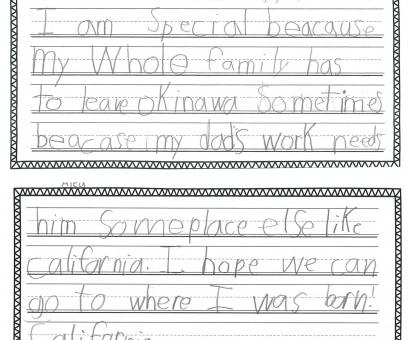 I am Special beacause
my Whole family has
to leave okinawa Sometimes
beacase my dad's work needs
him Someplace else like
california. I hope we can
go to where I was born!
California